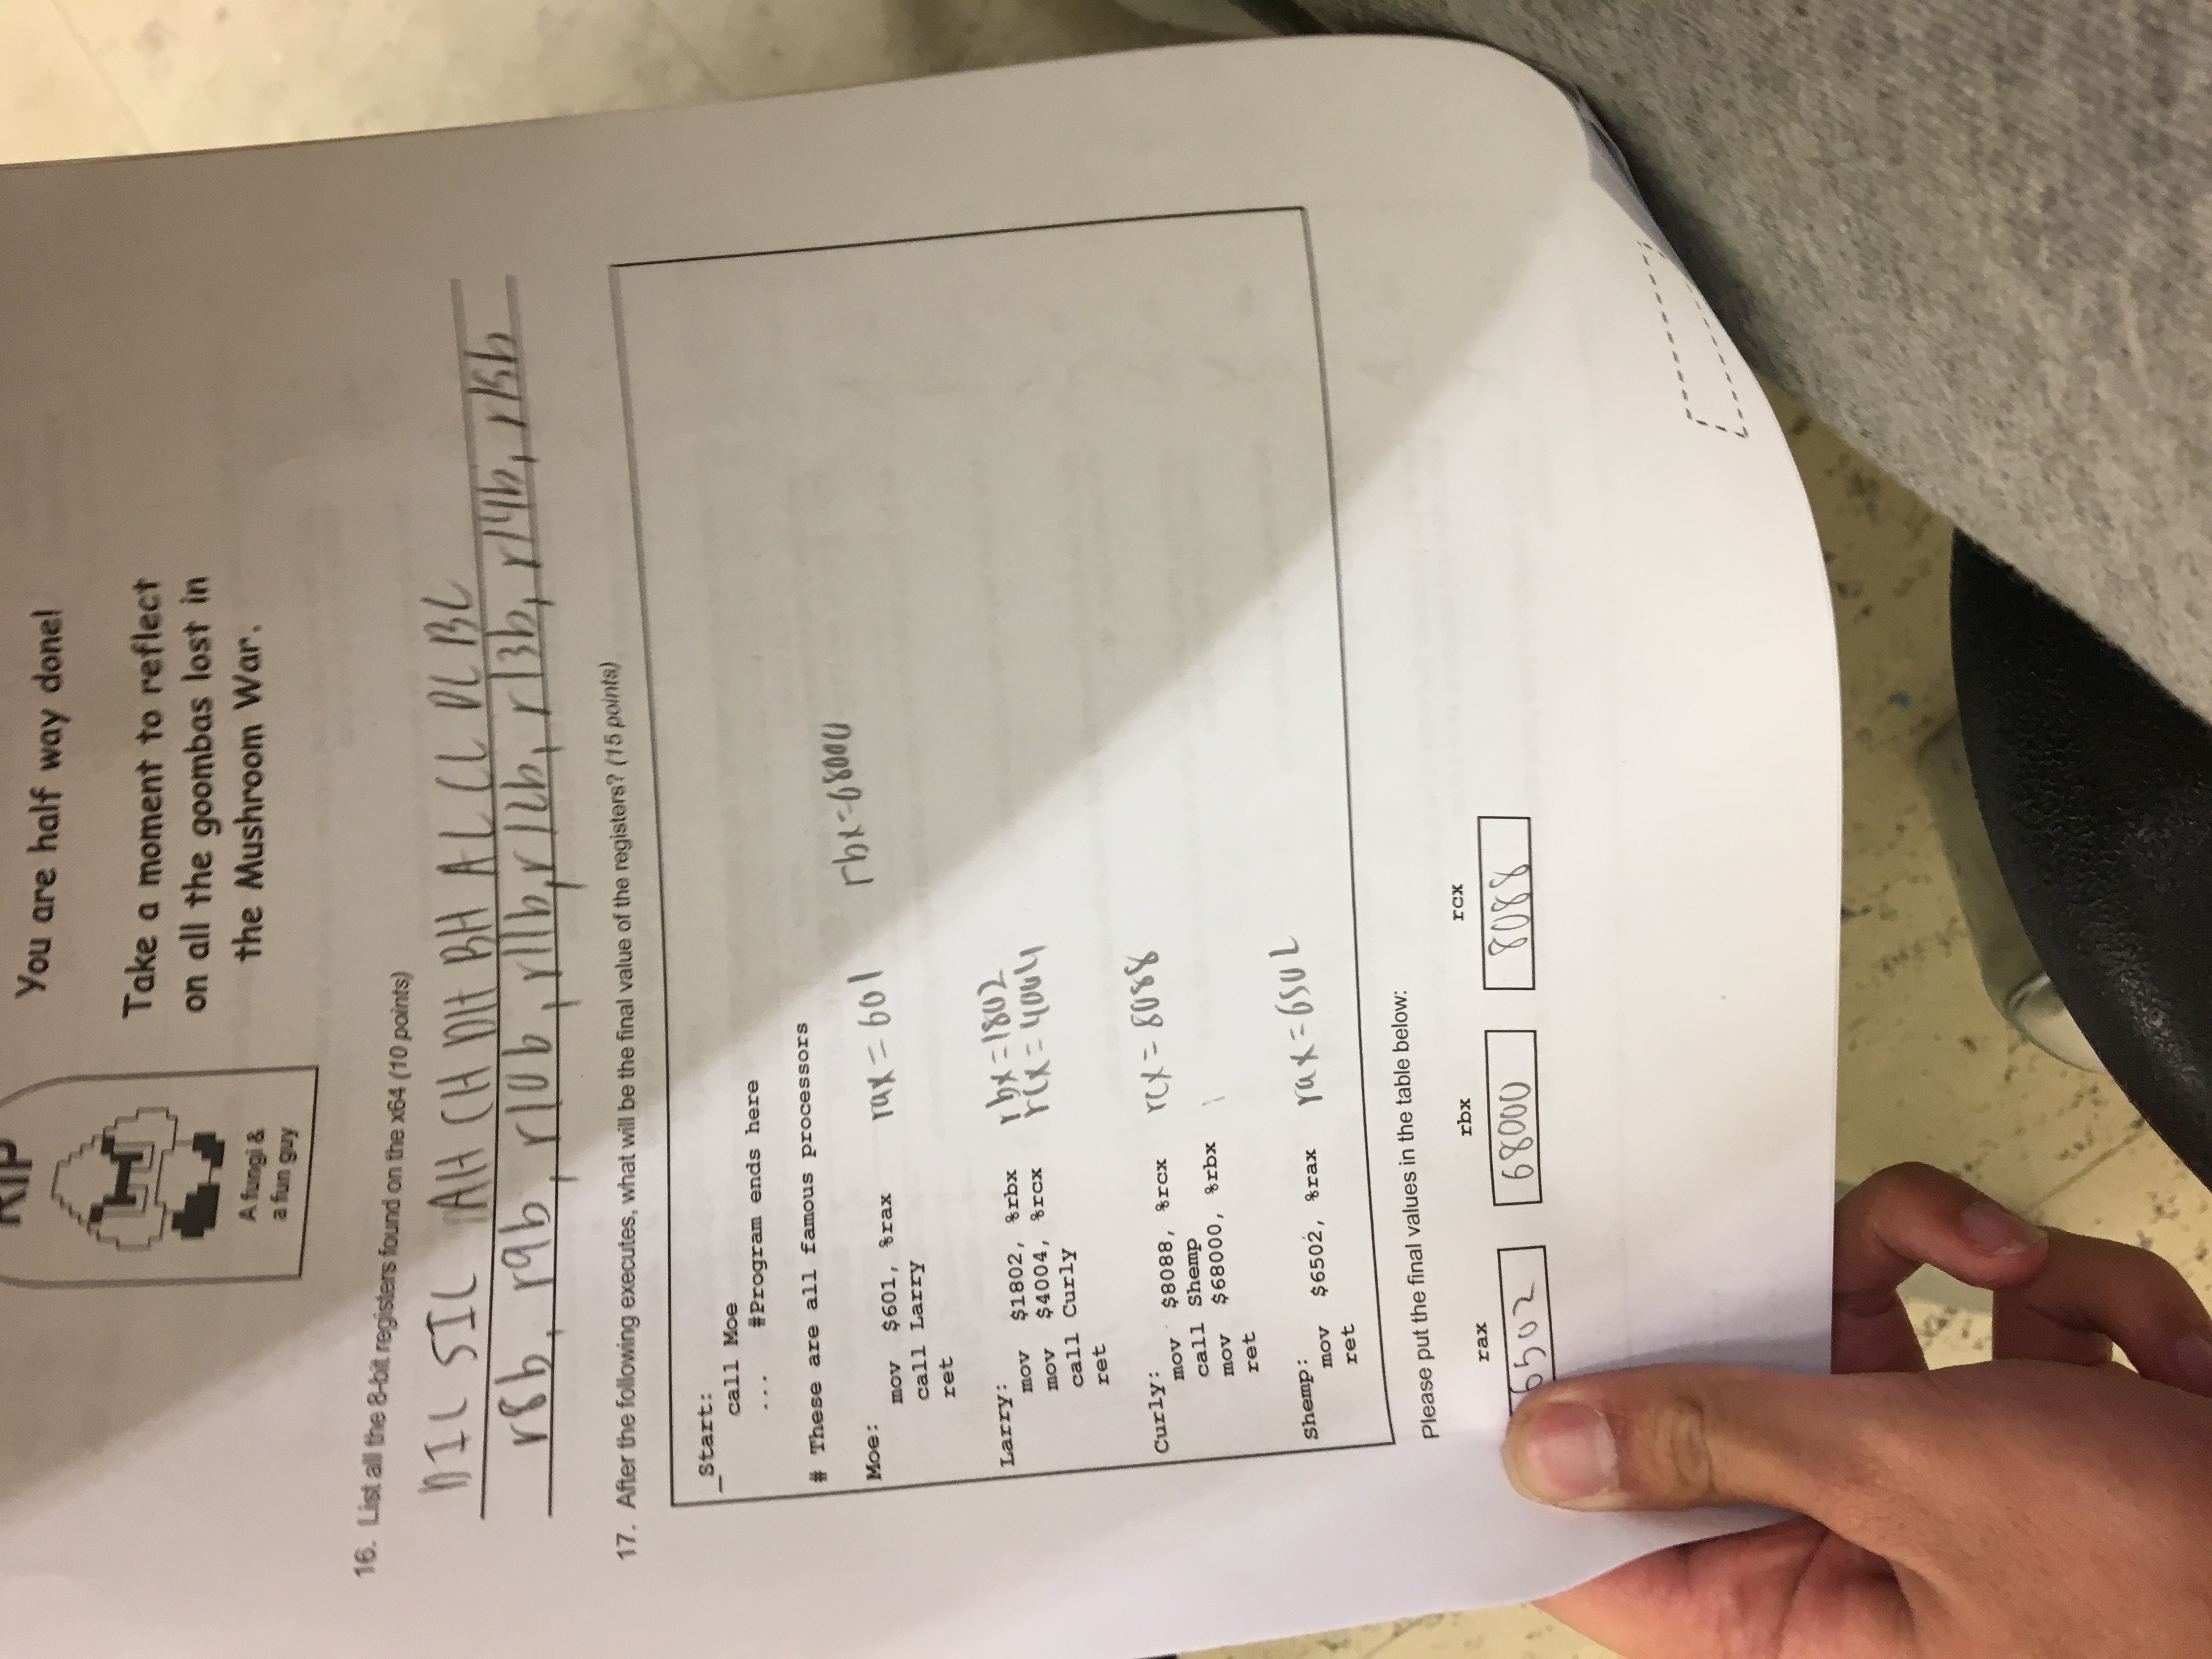 RIP
A fungi &
a fun guy
You are half way done!
Take a moment to reflect
on all the goombas lost in
the Mushroom War.
16. List all the 8-bit registers found on the x64 (10 points)
DIL SIL AH CH DH BH AL CL DL BL
r8b, r9b, r10b, r11b, r12b, r13b, r14b, r15b
17. After the following executes, what will be the final value of the registers? (15 points)
_Start:
call Moe
... #Program ends here
# These are all famous processors
Moe:
mov $601, %rax rax = 601 rbx=68000
call Larry
ret
Larry:
mov $1802, %rbx rbx=1802
mov $4004, %rcx rcx = 4004
call Curly
ret
Curly:
mov $8088, %rcx rcx = 8088
call Shemp
mov $68000, %rbx
ret
Shemp:
mov $6502, %rax rax=6502
ret
Please put the final values in the table below:
rax rbx rcx
6502 68000 8088